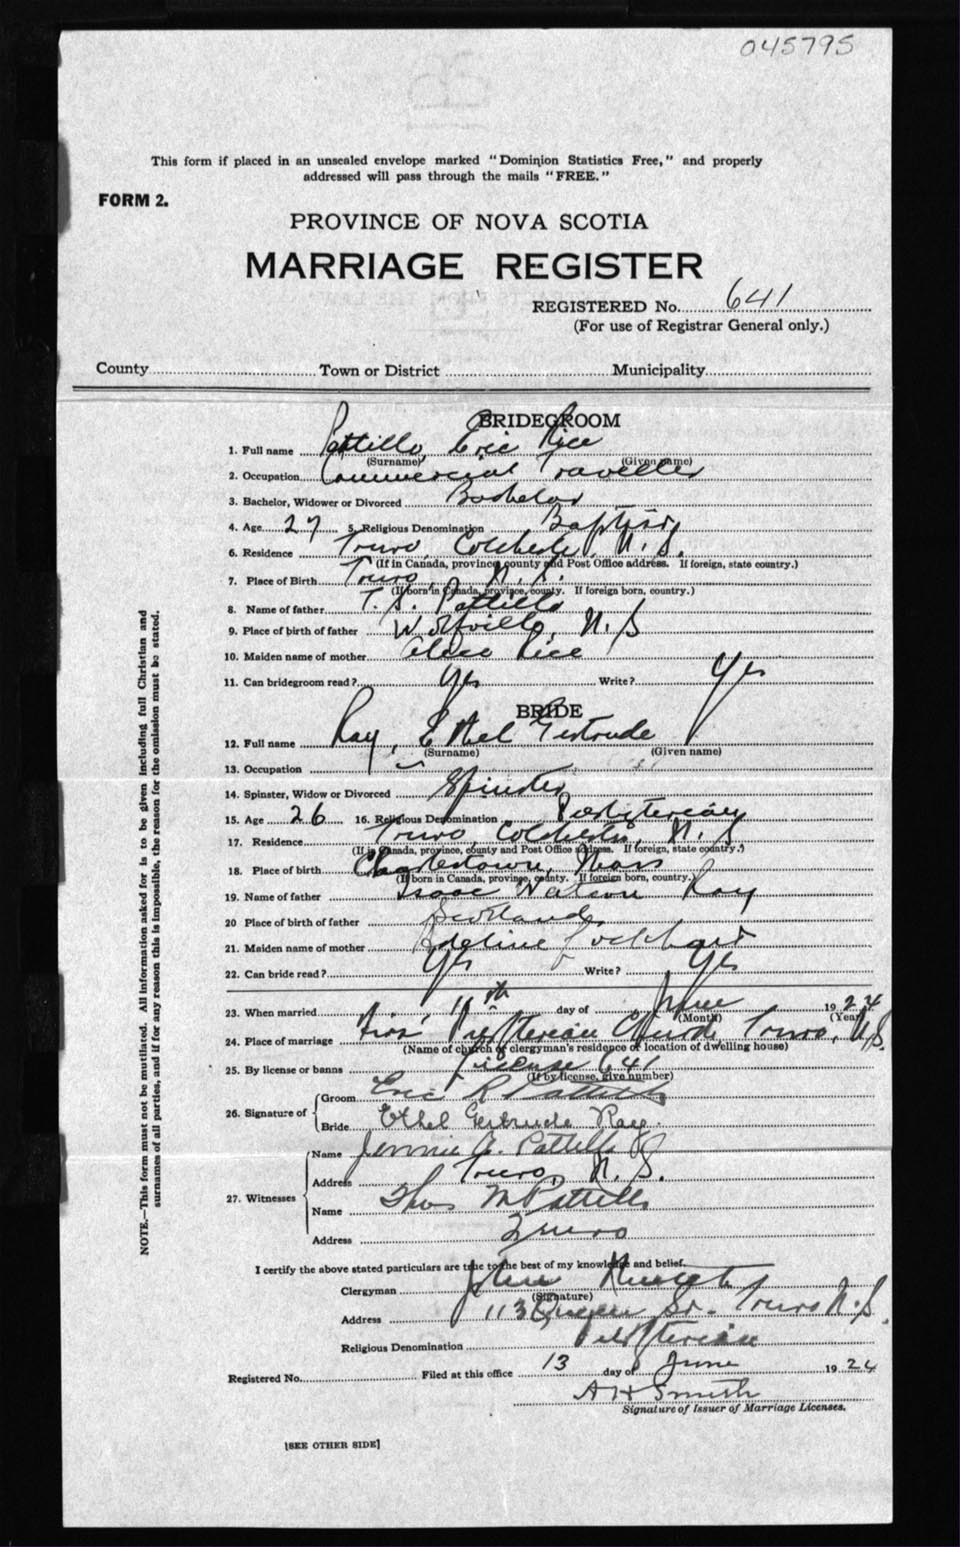 045795
This form if placed in an unsealed envelope marked "Dominion Statistics Free," and properly
addressed will pass through the mails "FREE."
FORM 2.
PROVINCE OF NOVA SCOTIA
MARRIAGE REGISTER
REGISTERED No. 641
(For use of Registrar General only.)
County Town or District Municipality
BRIDEGROOM
1. Full name Pattillo, Eric Rice
(Surname) (Given name)
2. Occupation Commercial Traveller
3. Bachelor, Widower or Divorced Bachelor
4. Age 27 5. Religious Denomination Baptist
6. Residence Truro, Colchester, N.S.
(If in Canada, province, county and Post Office address. If foreign, state country.)
7. Place of Birth Truro, N.S.
(If born in Canada, province, county. If foreign born, country.)
8. Name of father T. S. Pattillo
9. Place of birth of father Wolfville, N.S
10. Maiden name of mother Rice
11. Can bridegroom read? Yes Write? Yes
BRIDE
12. Full name Ray, Ethel Gertrude
(Surname) (Given name)
13. Occupation
14. Spinster, Widow or Divorced Spinster
15. Age 26 16. Religious Denomination Presbyterian
17. Residence Truro, Colchester, N.S
(If in Canada, province, county and Post Office address. If foreign, state country.)
18. Place of birth Charlestown, Mass
(If born in Canada, province, county. If foreign born, country.)
19. Name of father Isaac Watson Ray
20 Place of birth of father Scotland
21. Maiden name of mother Adeline Lockhart
22. Can bride read? Yes Write? Yes
23. When married 11th day of June 1924
(Month) (Year)
24. Place of marriage First Presbyterian Church Truro, N.S.
(Name of church or clergyman's residence or location of dwelling house)
25. By license or banns License 641
(If by license, give number)
26. Signature of Groom Eric R Pattillo
Bride Ethel Gertrude Ray.
27. Witnesses Name Jennie A. Pattillo
Address Truro, N.S.
Name Thos M Pattillo
Address Truro
I certify the above stated particulars are true to the best of my knowledge and belief.
Clergyman John
(Signature)
Address 113 Queen St. Truro N.S.
Religious Denomination Presbyterian
Registered No. Filed at this office 13 day of June 1924
A H Smith
Signature of Issuer of Marriage Licenses.
[SEE OTHER SIDE]
NOTE.—This form must not be mutilated. All information asked for is to be given including full Christian and
surnames of all parties, and if for any reason this is impossible, the reason for the omission must be stated.